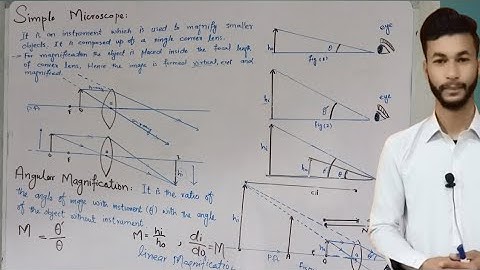 Simple Microscope:
It is an instrument which is used to magnify smaller
objects. It is composed up of a single convex lens.
- For magnification the object is placed inside the focal length
of convex lens. Hence the image is formed virtual, erect and
magnified.
Angular Magnification: It is the ratio of
the angle of image with instrument (θ') with the angle
of the object without instrument
M = θ'/θ
M = hi/ho , di/do = M
linear Magnification
ho
θ
eye
fig (1)
hi
θ'
eye
fig (2)
hi
ho
θ'
θ
hi
P.A